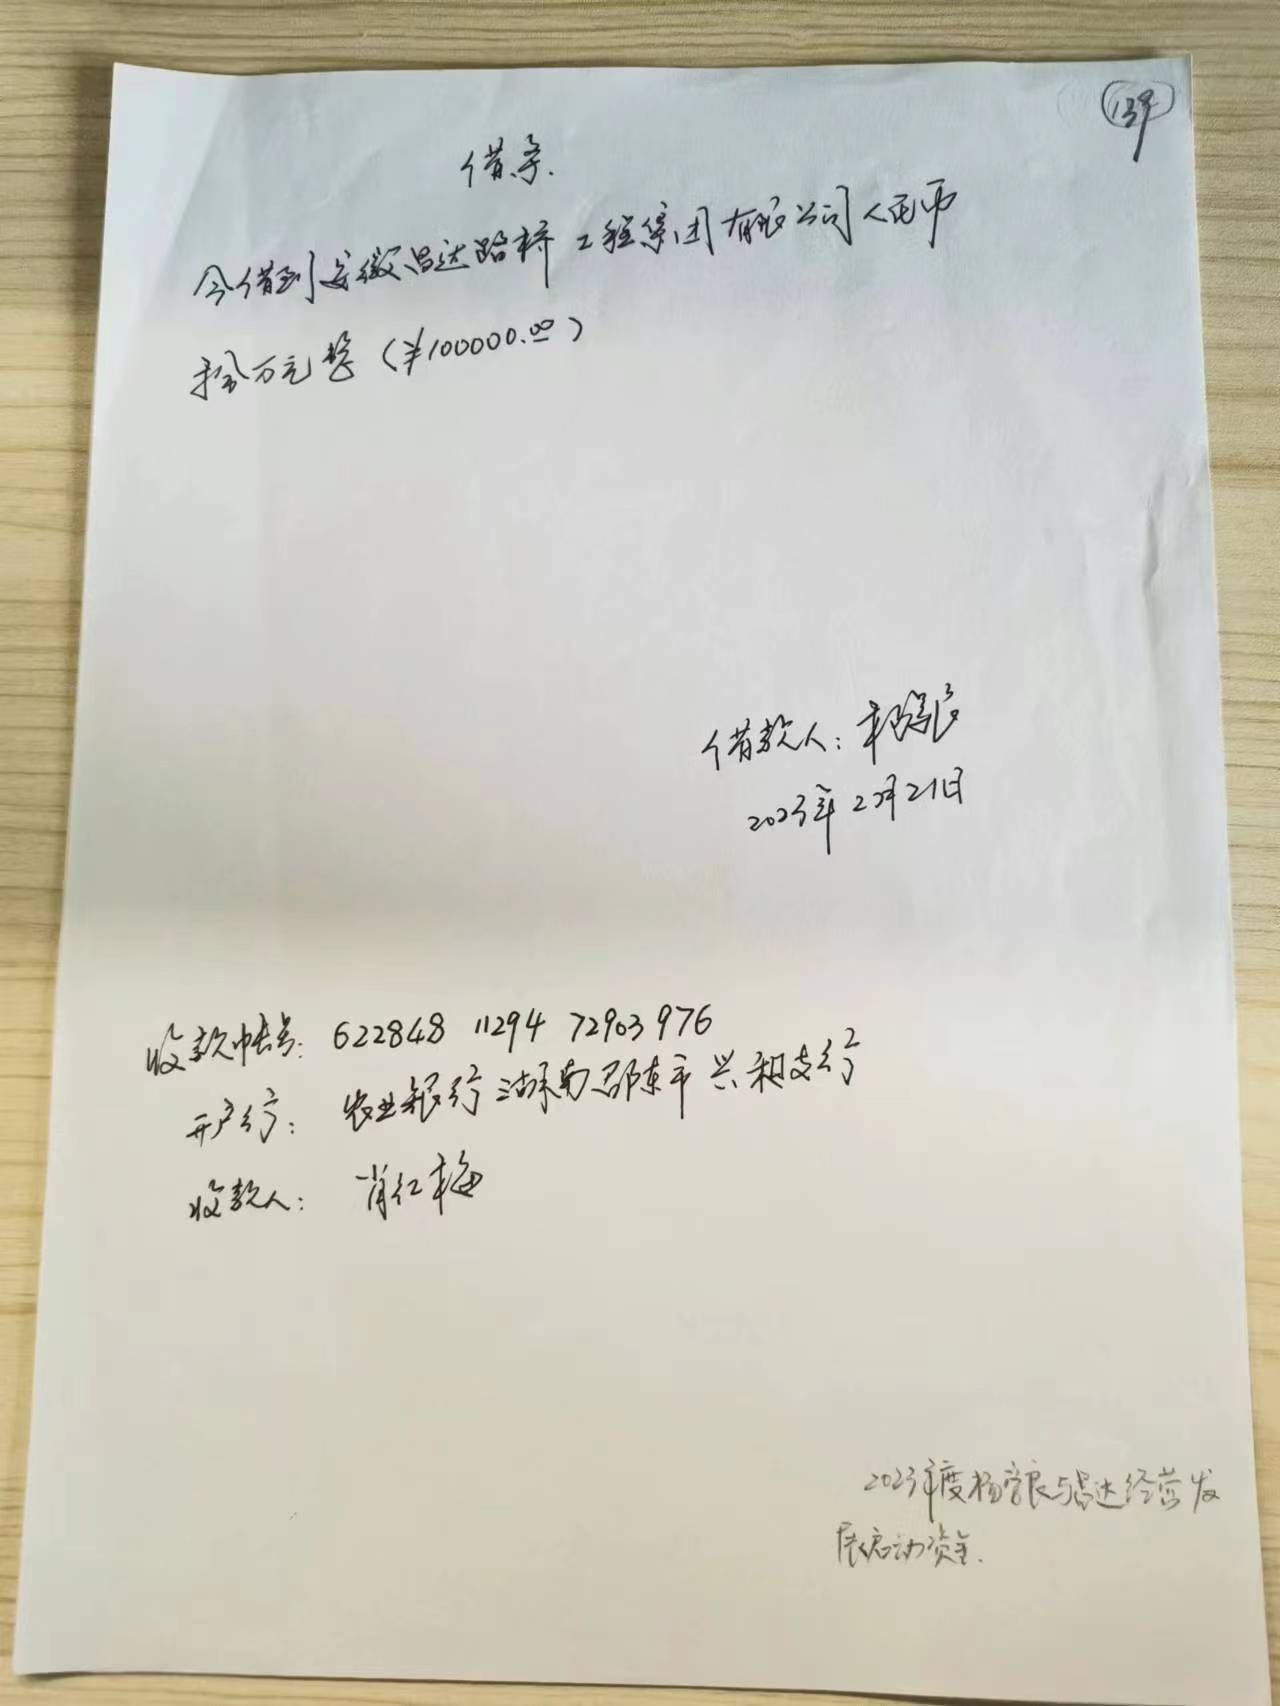 借条.
今借到安徽昌达路桥工程集团有限公司人民币
拾万元整(¥100000.00)
借款人:
2023年2月21日
收款帐号: 622848 11294 72903 976
开户行: 农业银行湖南邵东市兴和支行
收款人: 肖红梅
2023年度杨良与昌达经营发
展启动资金.